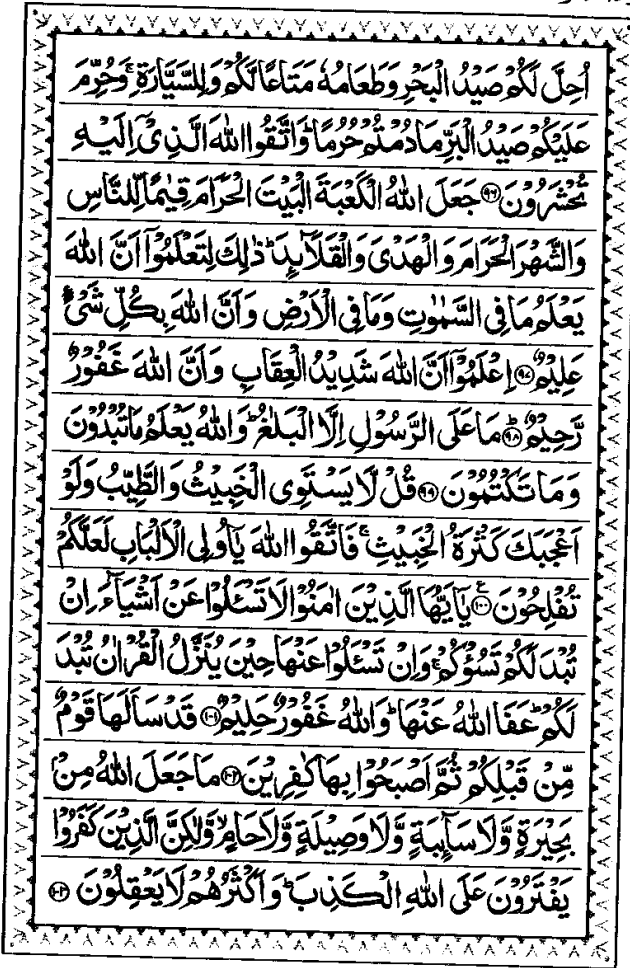 اُحِلَّ لَكُمْ صَيْدُ الْبَحْرِ وَطَعَامُهٗ مَتَاعًا لَّكُمْ وَلِلسَّيَّارَةِ ۚ وَحُرِّمَ
عَلَيْكُمْ صَيْدُ الْبَرِّ مَا دُمْتُمْ حُرُمًا ؕ وَاتَّقُوا اللّٰهَ الَّذِیْۤ اِلَيْهِ
تُحْشَرُوْنَ ﴿۹۶﴾ جَعَلَ اللّٰهُ الْكَعْبَةَ الْبَيْتَ الْحَرَامَ قِيٰمًا لِّلنَّاسِ
وَالشَّهْرَ الْحَرَامَ وَالْهَدْیَ وَالْقَلَآئِدَ ؕ ذٰلِكَ لِتَعْلَمُوْۤا اَنَّ اللّٰهَ
يَعْلَمُ مَا فِی السَّمٰوٰتِ وَمَا فِی الْاَرْضِ وَاَنَّ اللّٰهَ بِكُلِّ شَیْءٍ
عَلِيْمٌ ﴿۹۷﴾ اِعْلَمُوْۤا اَنَّ اللّٰهَ شَدِيْدُ الْعِقَابِ وَاَنَّ اللّٰهَ غَفُوْرٌ
رَّحِيْمٌ ؕ﴿۹۸﴾ مَا عَلَی الرَّسُوْلِ اِلَّا الْبَلٰغُ ؕ وَاللّٰهُ يَعْلَمُ مَا تُبْدُوْنَ
وَمَا تَكْتُمُوْنَ ﴿۹۹﴾ قُلْ لَّا يَسْتَوِی الْخَبِيْثُ وَالطَّيِّبُ وَلَوْ
اَعْجَبَكَ كَثْرَةُ الْخَبِيْثِ ۚ فَاتَّقُوا اللّٰهَ يٰۤاُولِی الْاَلْبَابِ لَعَلَّكُمْ
تُفْلِحُوْنَ ﴿۱۰۰﴾ يٰۤاَيُّهَا الَّذِيْنَ اٰمَنُوْا لَا تَسْئَلُوْا عَنْ اَشْيَآءَ اِنْ
تُبْدَ لَكُمْ تَسُؤْكُمْ ۚ وَاِنْ تَسْئَلُوْا عَنْهَا حِيْنَ يُنَزَّلُ الْقُرْاٰنُ تُبْدَ
لَكُمْ ؕ عَفَا اللّٰهُ عَنْهَا ؕ وَاللّٰهُ غَفُوْرٌ حَلِيْمٌ ﴿۱۰۱﴾ قَدْ سَاَلَهَا قَوْمٌ
مِّنْ قَبْلِكُمْ ثُمَّ اَصْبَحُوْا بِهَا كٰفِرِيْنَ ﴿۱۰۲﴾ مَا جَعَلَ اللّٰهُ مِنْۢ
بَحِيْرَةٍ وَّلَا سَآئِبَةٍ وَّلَا وَصِيْلَةٍ وَّلَا حَامٍ ۙ وَّلٰكِنَّ الَّذِيْنَ كَفَرُوْا
يَفْتَرُوْنَ عَلَی اللّٰهِ الْكَذِبَ ؕ وَاَكْثَرُهُمْ لَا يَعْقِلُوْنَ ﴿۱۰۳﴾